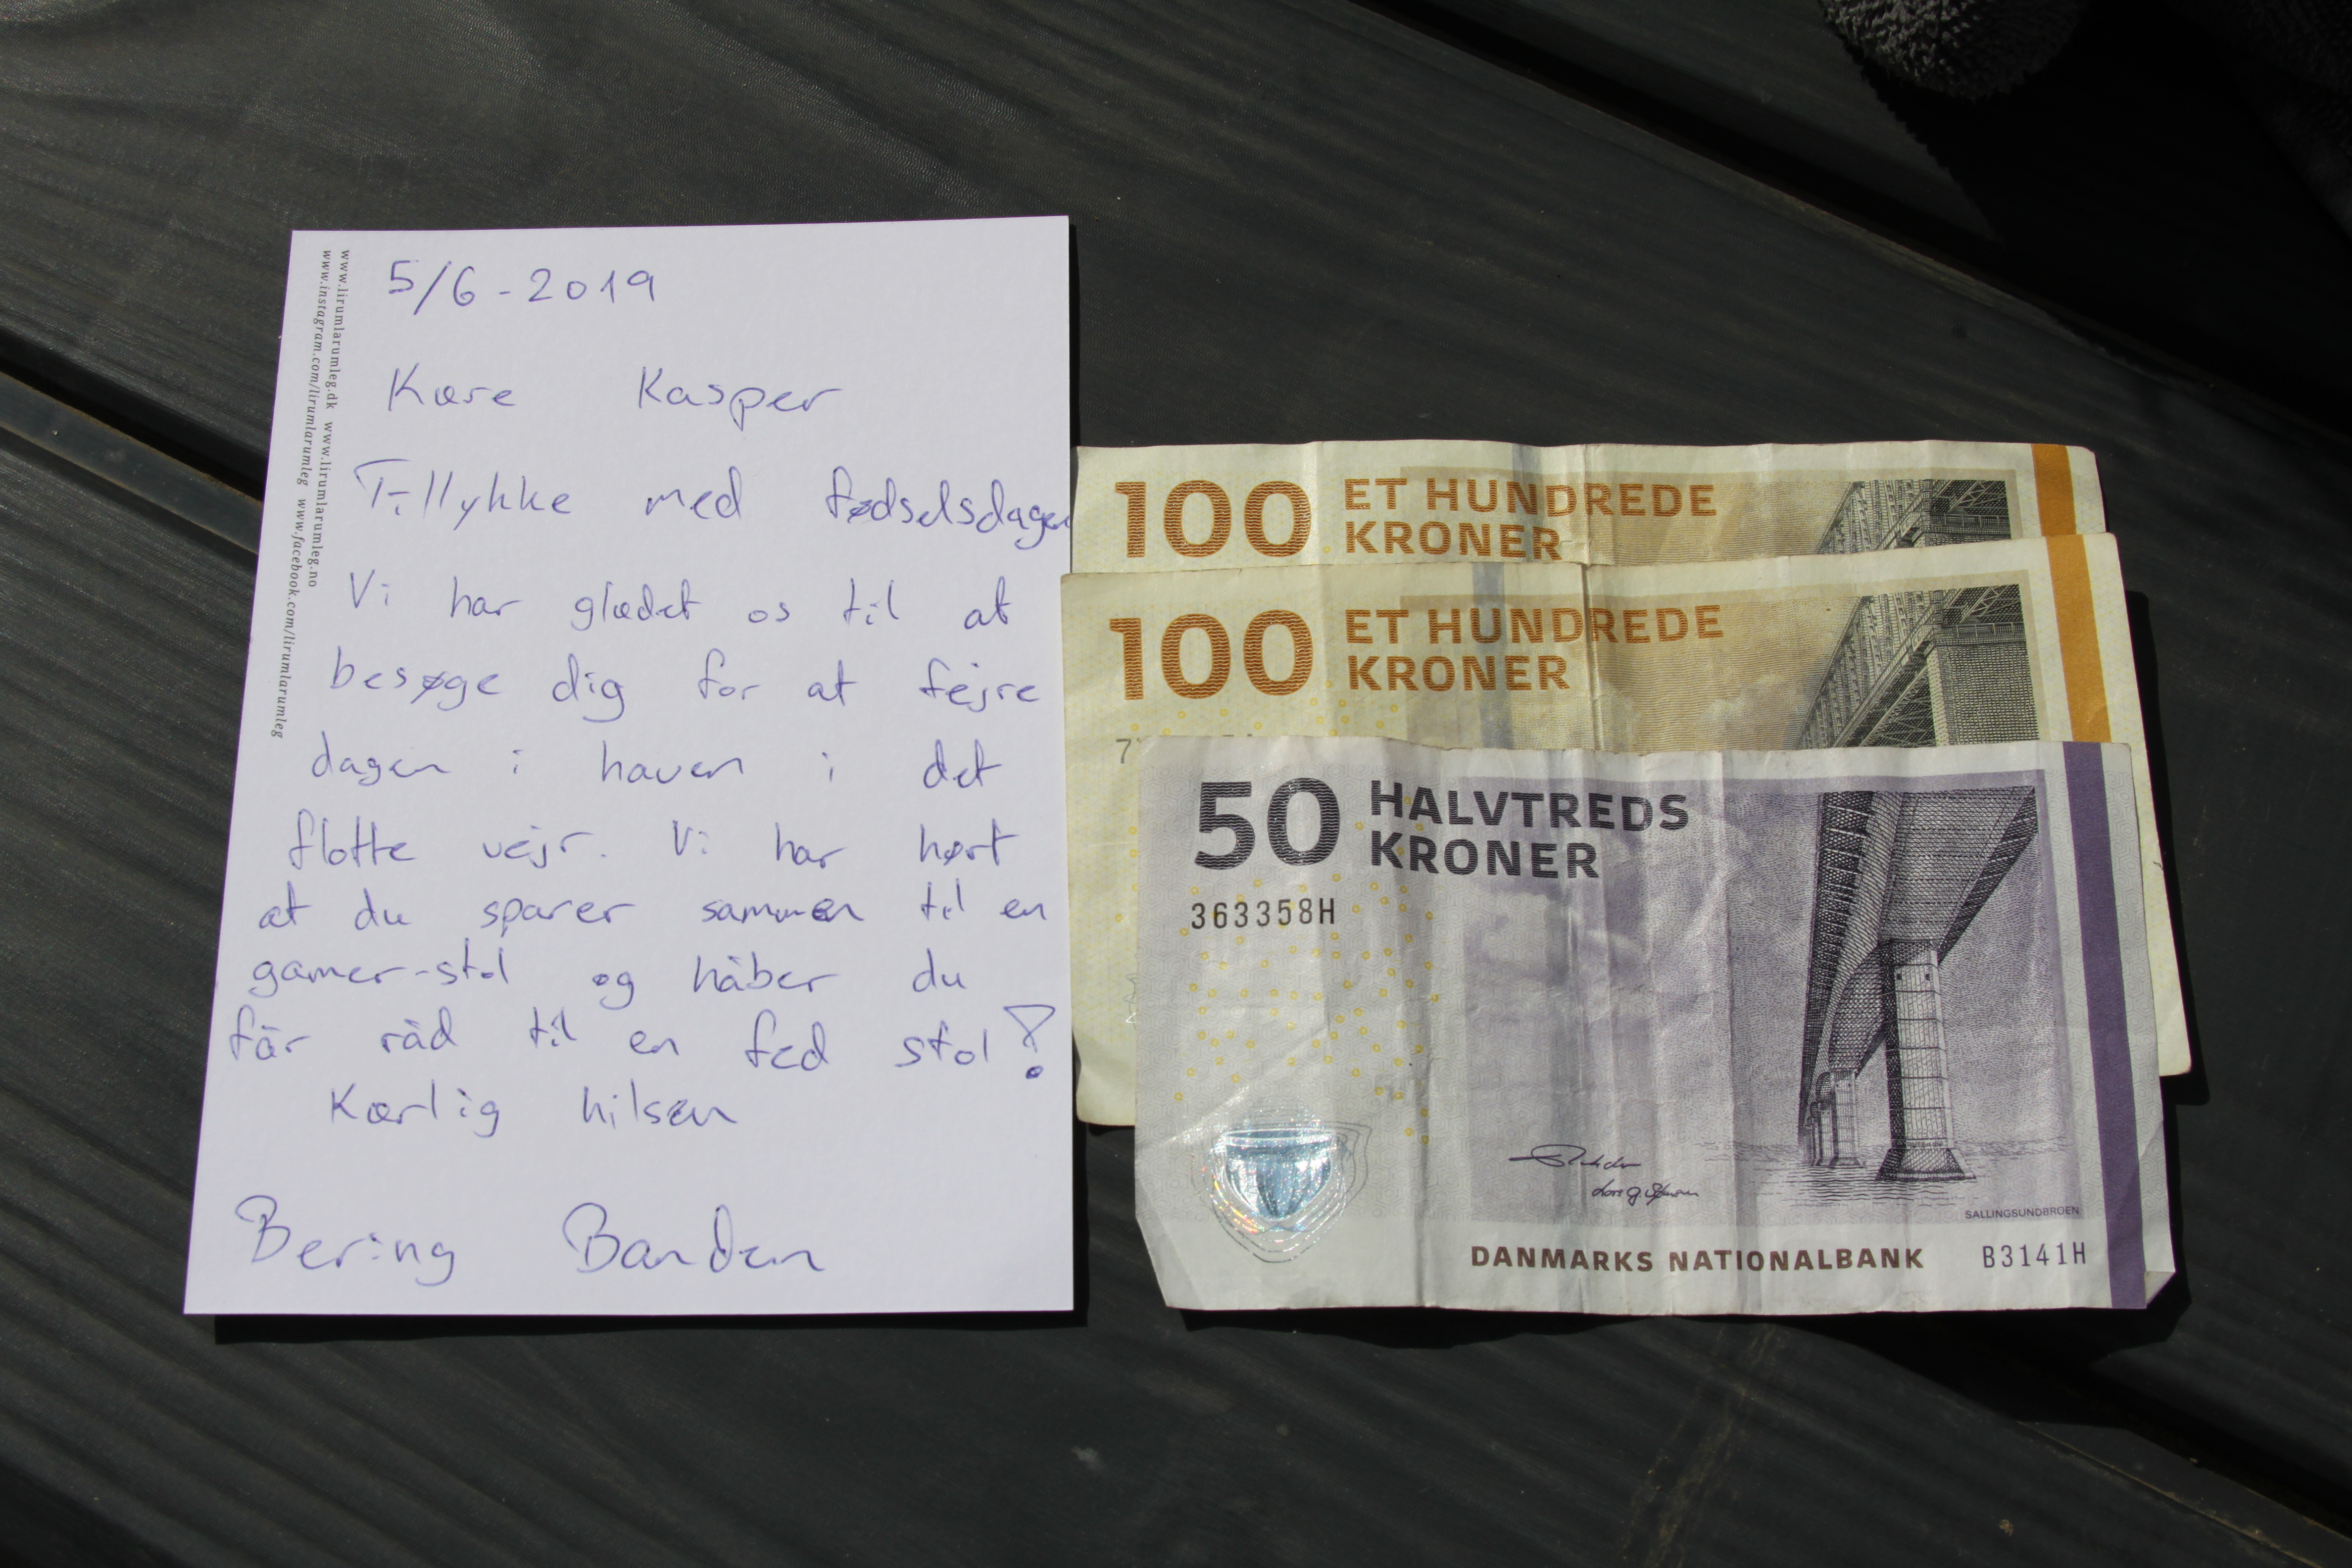 www.lirumlarumleg.dk www.lirumlarumleg.no
www.instagram.com/lirumlarumleg www.facebook.com/lirumlarumleg
5/6-2019
Kære Kasper
Tillykke med fødselsdagen
Vi har glædet os til at
besøge dig for at fejre
dagen i haven i det
flotte vejr. Vi har hørt
at du sparer sammen til en
gamer-stol og håber du
får råd til en fed stol!
Kærlig hilsen
Bering Banden
100 ET HUNDREDE
KRONER
100 ET HUNDREDE
KRONER
50 HALVTREDS
KRONER
363358H
SALLINGSUNDBROEN
DANMARKS NATIONALBANK B3141H